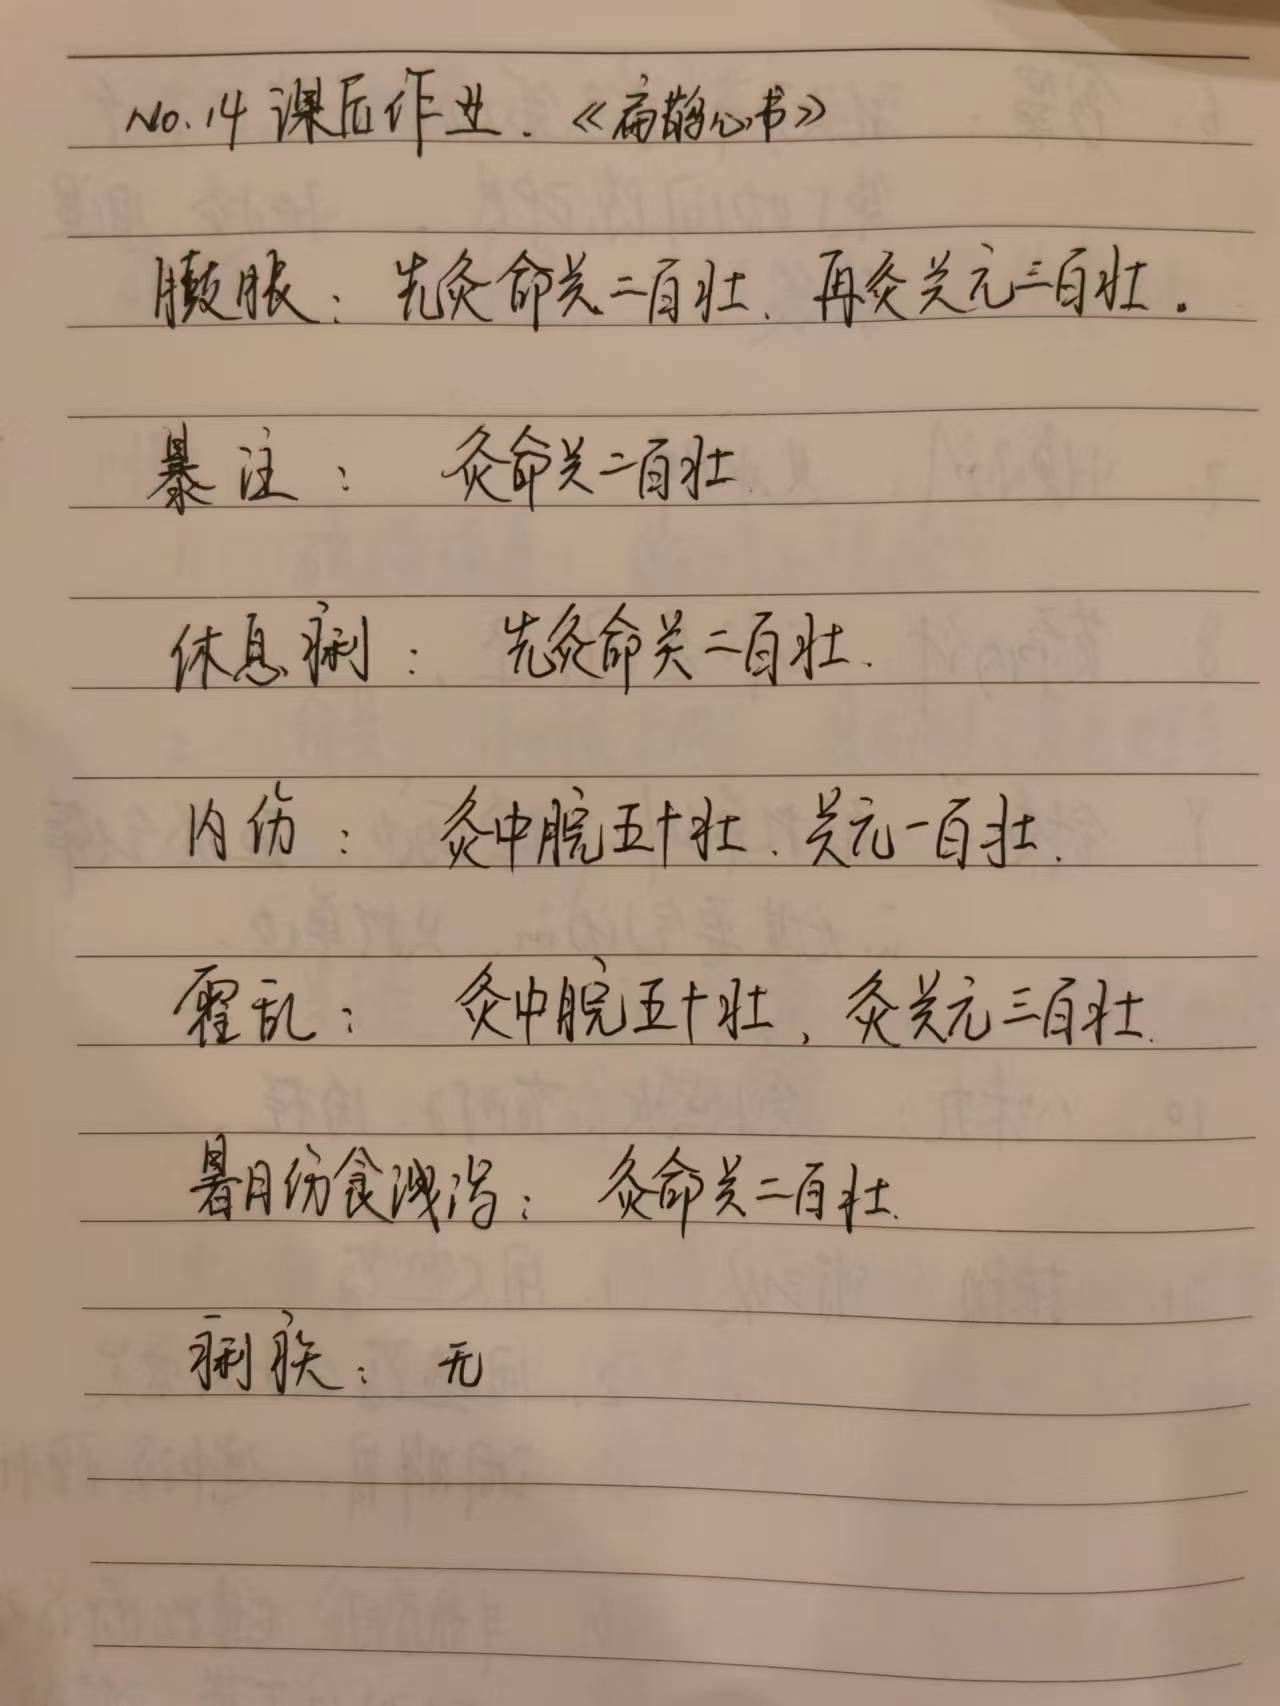 No.14 课后作业.《扁鹊心书》
臌胀：先灸命关二百壮，再灸关元三百壮。
暴注： 灸命关二百壮
休息痢： 先灸命关二百壮.
内伤： 灸中脘五十壮、关元一百壮.
霍乱： 灸中脘五十壮，灸关元三百壮.
暑月伤食洩泻： 灸命关二百壮.
痢疾： 无